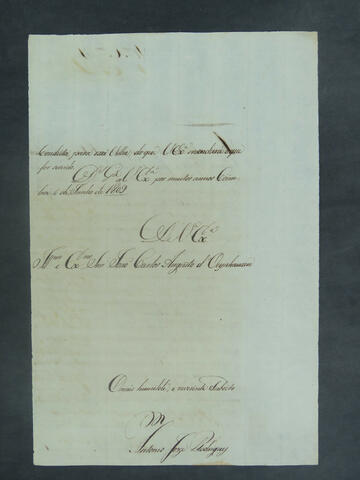 Conducta, para esta Villa, do que V Exª mandará o que
for servido.
Dˢ Gᵈᵉ a V Exª por muitos annos Coim
bra 6 de Junho de 1809
De V Exª
Illᵐᵒ e Exᵐᵒ Snr João Carlos Augusto d Oeynhausen
O mais humilde, e reverente Subdito
Antonio Joze Rodrigues